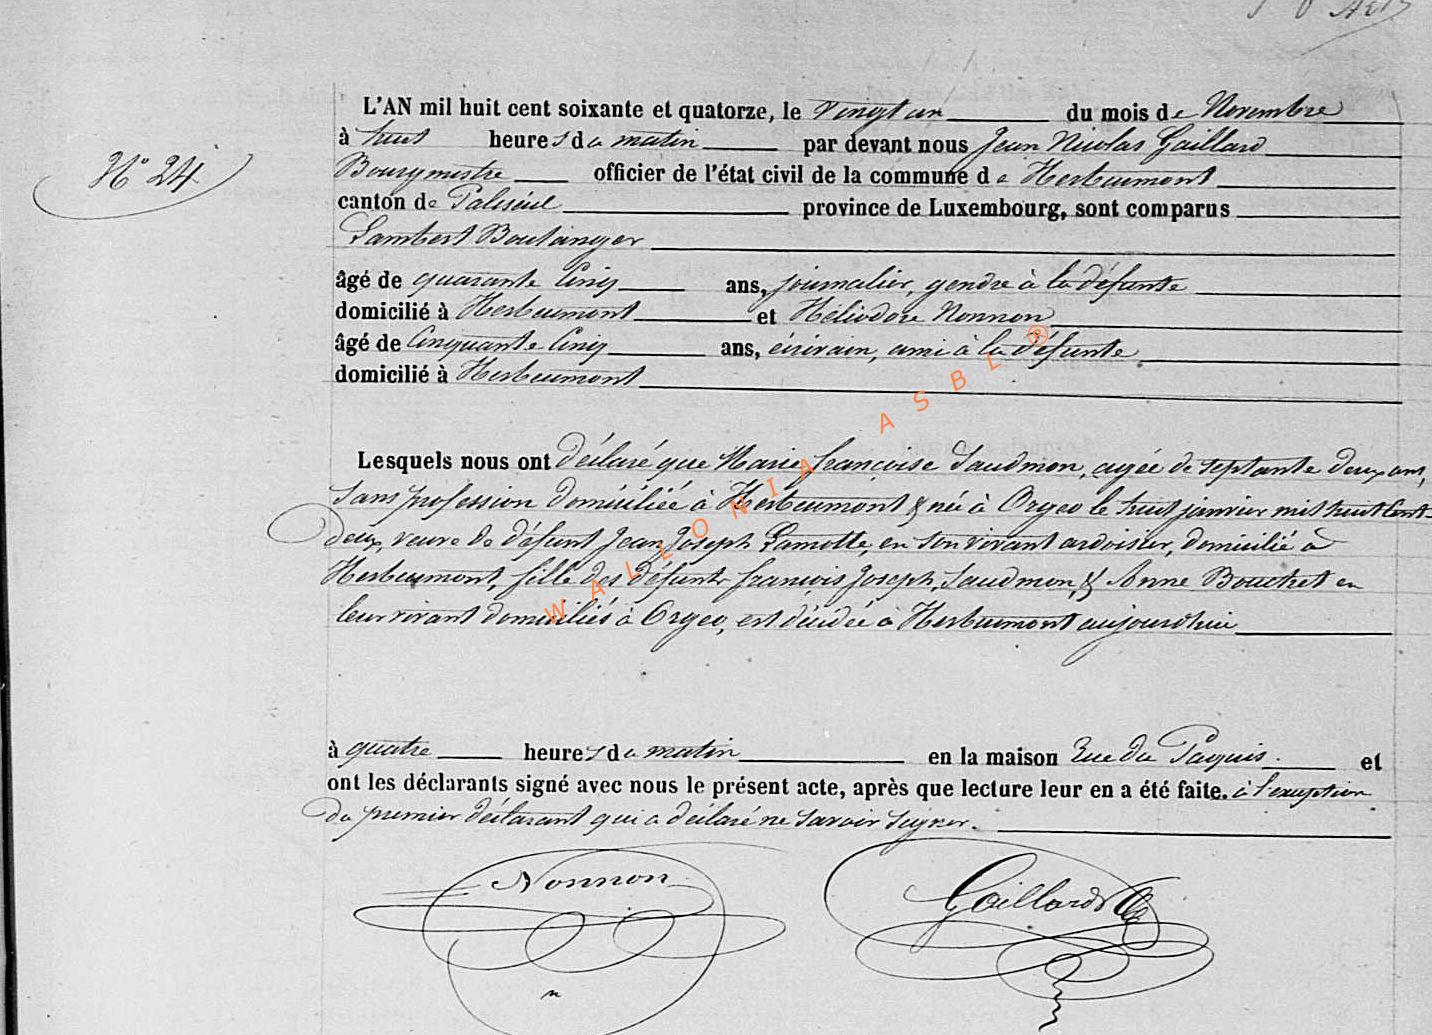 N° 24
L'AN mil huit cent soixante et quatorze, le vingt un du mois de Novembre
à huit heures du matin par devant nous Jean Nicolas Gaillard
Bourgmestre officier de l'état civil de la commune de Herbeumont
canton de Paliseul province de Luxembourg, sont comparus
Lambert Boulanger
âgé de quarante cinq ans, journalier, gendre à la défunte
domicilié à Herbeumont et Héliodore Nonnon
âgé de cinquante cinq ans, écrivain, ami à la défunte
domicilié à Herbeumont
Lesquels nous ont déclaré que Marie françoise Saudmon, agée de septante deux ans,
sans profession domiciliée à Herbeumont & née à Orgeo le huit janvier mil huit cent
deux, veuve de défunt Jean Joseph Lamotte, en son vivant ardoisier, domicilié à
Herbeumont, fille des défunts françois Joseph Saudmon, & Anne Bouchet en
leur vivant domiciliés à Orgeo, est décédée à Herbeumont aujourd'hui
à quatre heures du matin en la maison Rue du Paquis. et
ont les déclarants signé avec nous le présent acte, après que lecture leur en a été faite. à l'exception
du premier déclarant qui a déclaré ne savoir signer.
Nonnon Gaillard
WALLONIA ASBL ®